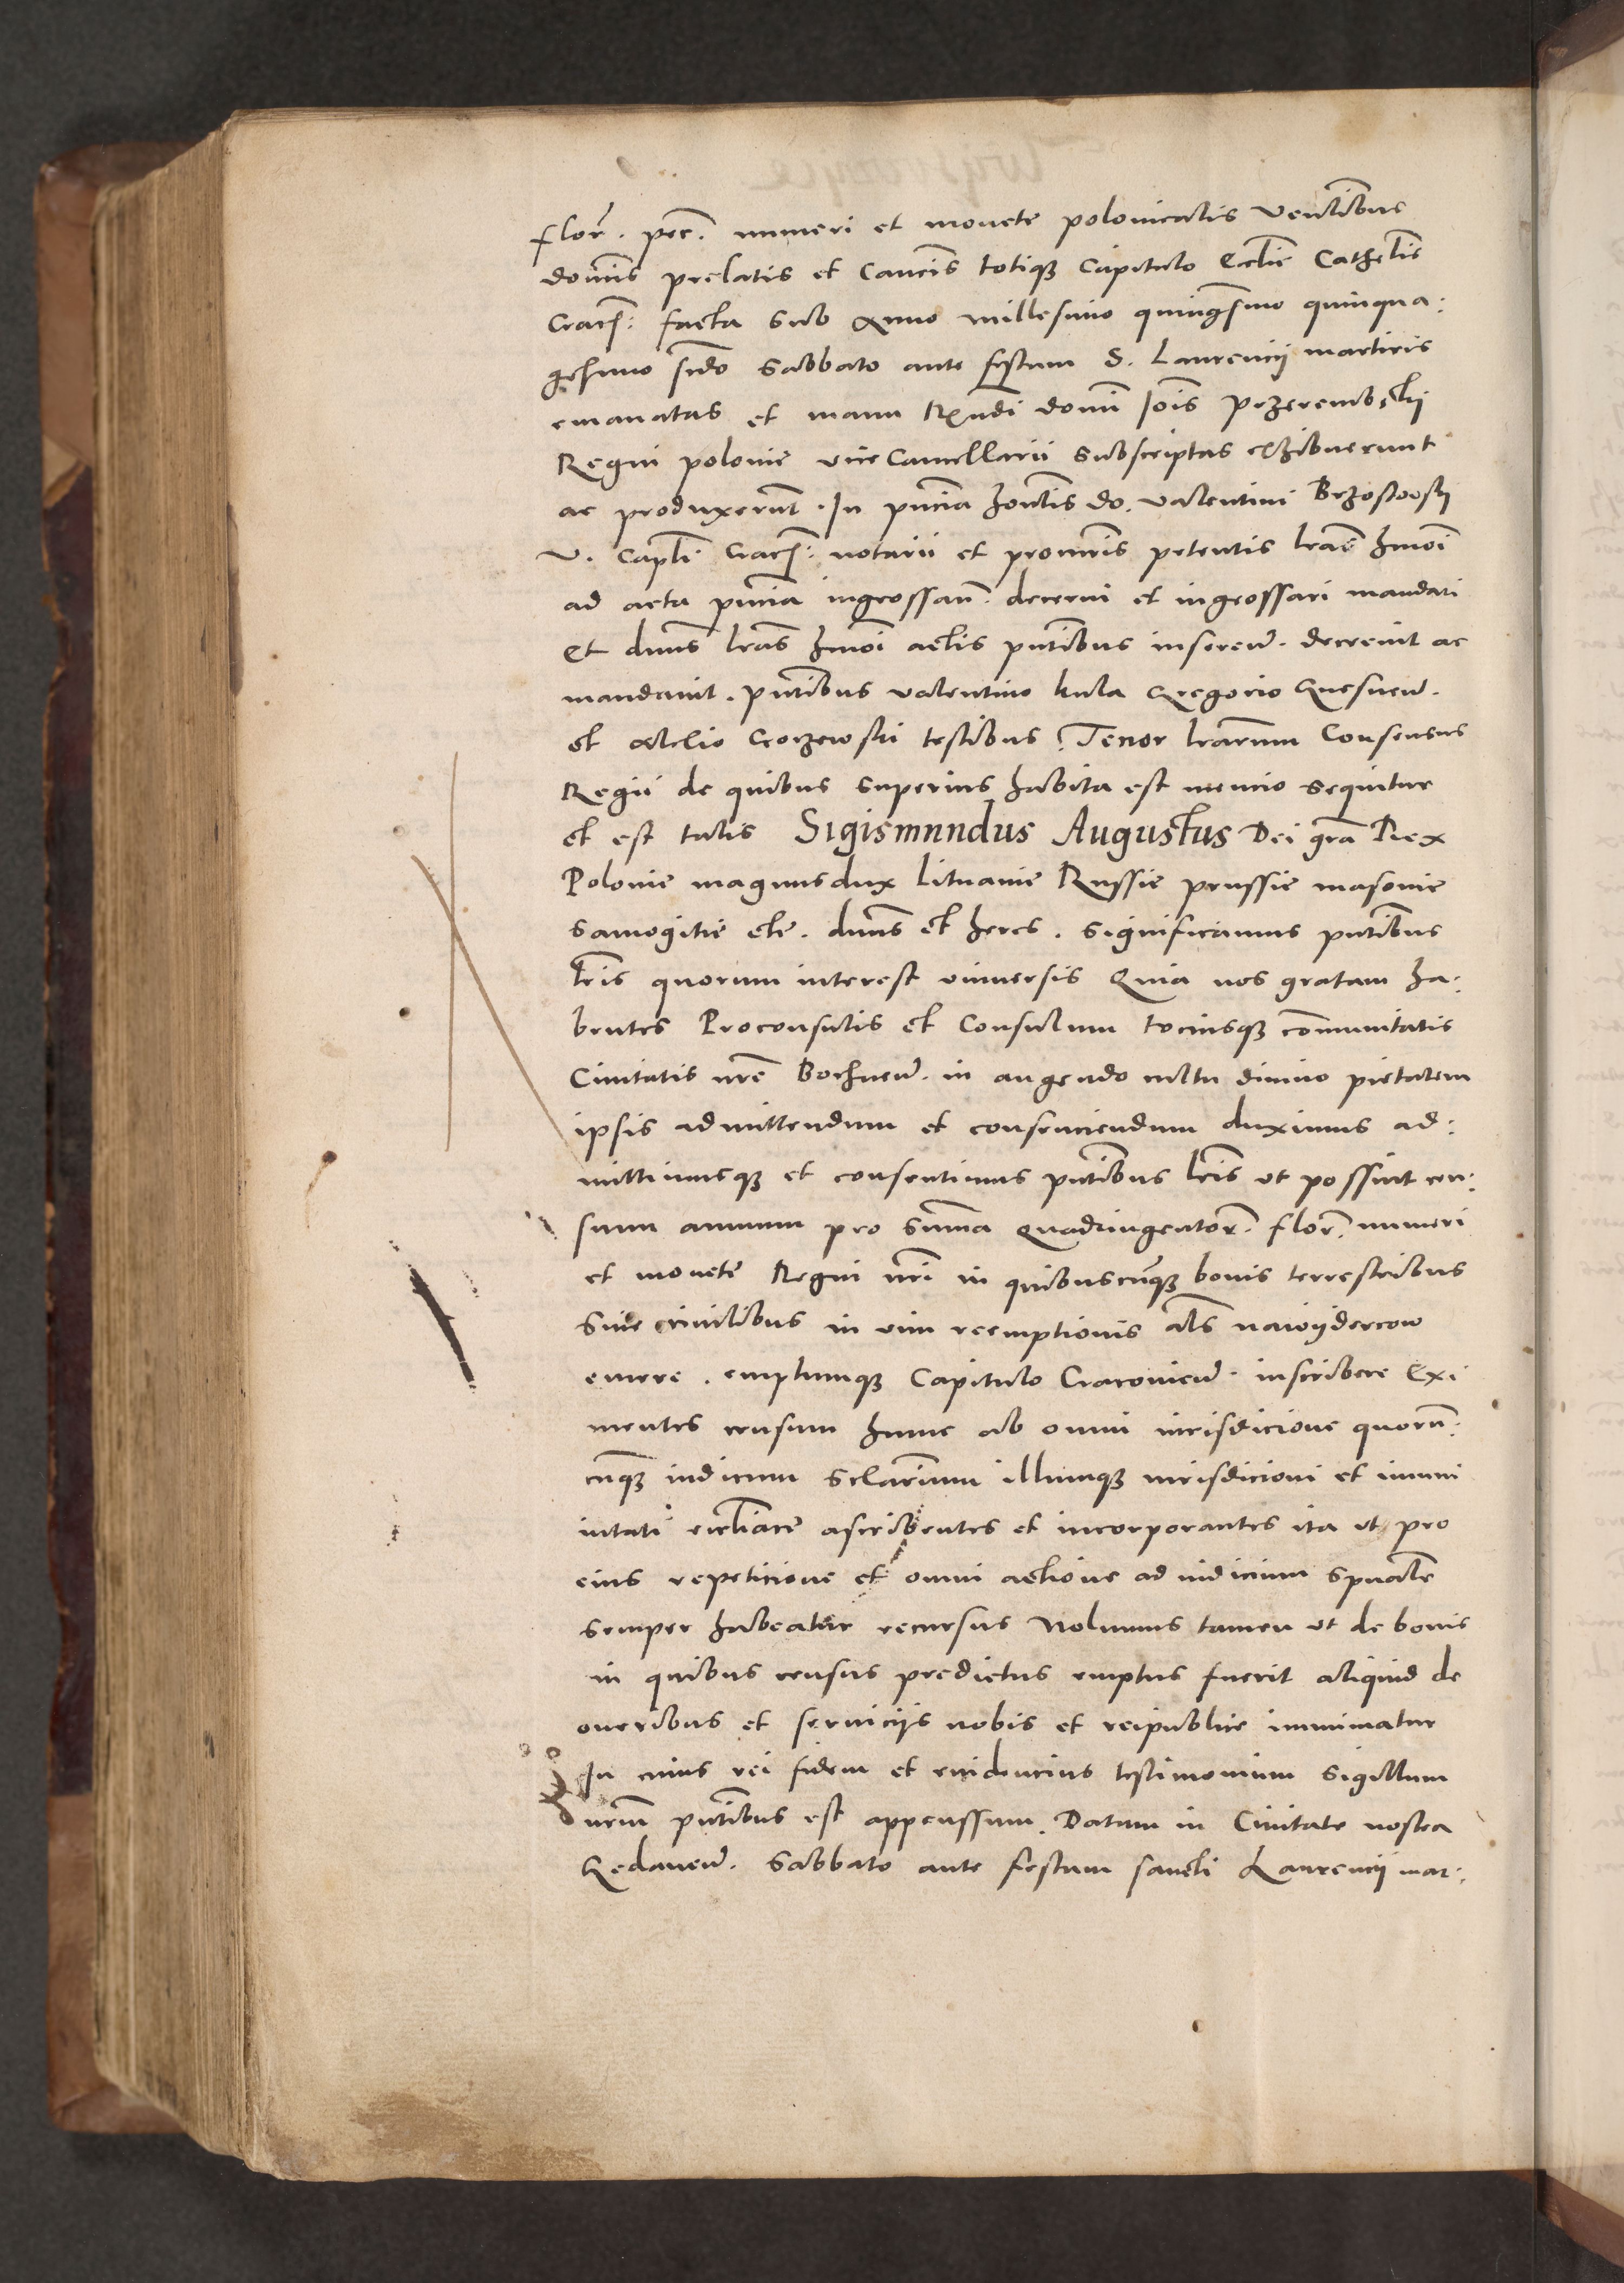 florꝫ. pec̃. numeri et monete polonicalis Venl̃ibus
dominis prelatis et Canc̃is totiqꝫ Capitulo Ecclie Cathedl̃is
Cracꝭ: facta sub Anno millesimo quingẽsimo quinqua:
gesimo sc̃do Sabbato ante festum S. Laurencij martiris
emanatas et manu Rx̃ndi domi Joi̅s Przerembskij
Regni polonie vicecancellarii subscriptas exhibuerunt
ac produxerunt. In pñcia honl̃is do. Valentini Brzostowskj
V. Capl̃i Cracꝭ: notarii et procuris petentis lrãs hmoi̅
ad acta pñcia ingrossari decerni et ingrossari mandari
Et dñus lrãs hmoi̅ actis pñtibus inserend. decrevit ac
mandavit. pñtibus Valentino kula Gregorio Gnesnen.
et Alelio Gorzewski testibus. Tenor lrarum Consensus
Regii de quibus superius habita est mencio sequitur
et est talis Sigismundus Augustus Dei gr̃a Rex
Polonie magnus dux Lituanie Russie prussie masovie
samogitie etc. dñus et heres. Significamus pñtibus
lr̃is quorum interest universis Quia nos gratam ha:
bentes Proconsulis et Consulum tociusqꝫ com̃unitatis
Civitatis nrẽ Bochnen. in augendo cultu divino pietatem
ipsis admittendum et consenciendum duximus ad:
mittimusqꝫ et consentimus pñtibus lr̃is ut possint cen:
sum annuum pro sum̃a quadringentorꝫ. florꝫ. numeri
et monete Regni nr̃i in quibuscunqꝫ bonis terrestribus
sive civilibus in vim reemptionis al̃s nawydercow
emere. emptumqꝫ Capitulo Cracovien. inscribere Exi
mentes censum hunc ab omni iurisdicione quorũ:
cunqꝫ iudicum sclarium illumqꝫ iurisdicioni et immu
nitati eccl̃iace ascribentes et incorporantes ita ut pro
eius repeticione et omni actione ad iudicium spũale
semper habeatur recursus Nolumus tamen ut de bonis
in quibus census predictus emptus fuerit aliquid de
oneribus et serviciis nobis et reipublice imminuatur
In cuius rei fidem et evidencius testimonium sigillum
nrum pñtibus est appenssum. Datum in Civitate nostra
Gedanen. Sabbato ante festum sancti Laurencij mar: